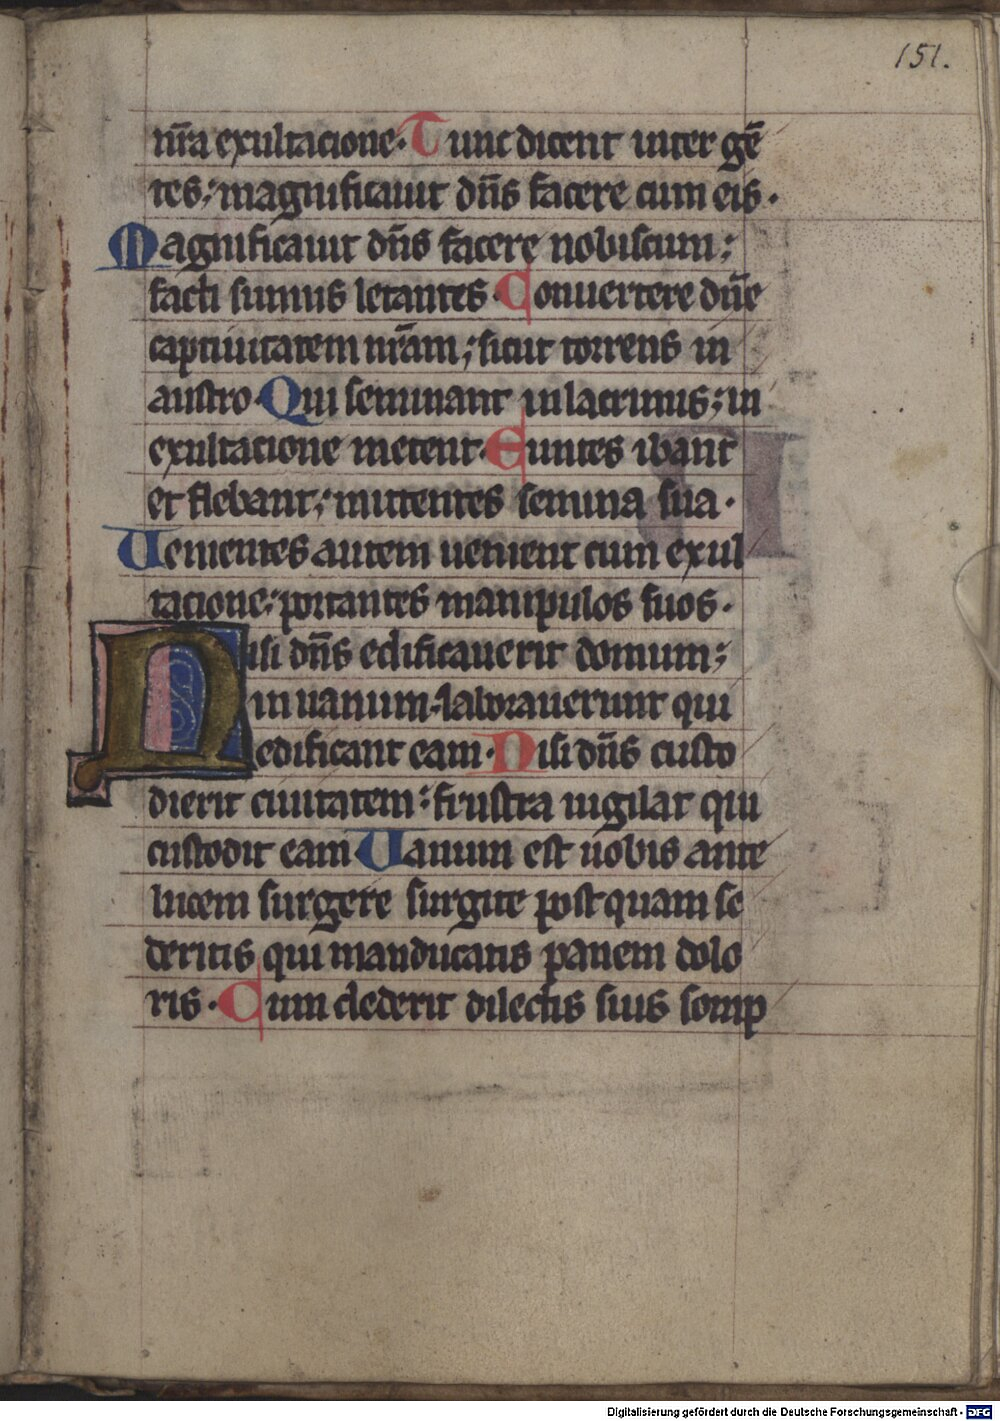 151.
nr̄a exultacione· Tunc dicent inter gē
tes; magnificauit dn̄s facere cum eis·
Magnificauit dn̄s facere nobiscum;
facti sumus letantes· Conuertere dn̄e
captiuitatem nr̄am; sicut torrens in
austro· Qui seminant in lacrimis; in
exultacione metent· Euntes ibant
et flebant; mittentes semina sua·
Uenientes autem uenient cum exul
tacione; portantes manipulos suos·
Nisi dn̄s edificauerit domum;
in uanum laborauerunt qui
edificant eam· Nisi dn̄s custo
dierit ciuitatem; frustra uigilat qui
custodit eam Uanum est uobis ante
lucem surgere surgite postquam se
deritis qui manducatis panem dolo
ris· Cum dederit dilectis suis somp
Digitalisierung gefördert durch die Deutsche Forschungsgemeinschaft - DFG